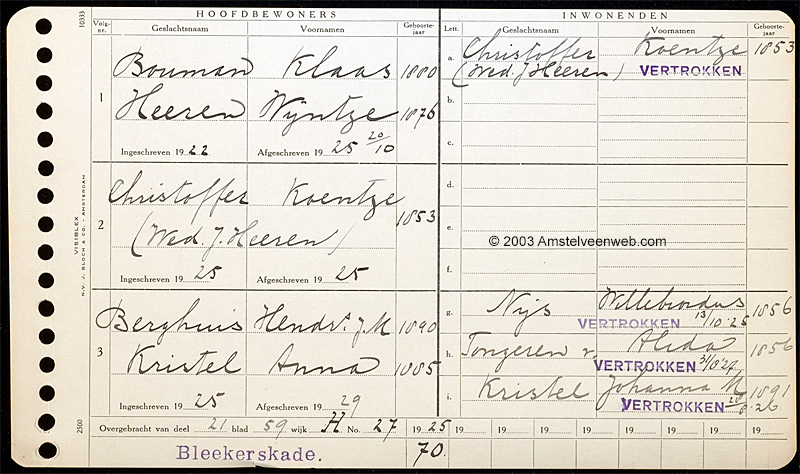 HOOFDBEWONERS
INWONENDEN
Volg-nr.
Geslachtsnaam
Voornamen
Geboorte-jaar
Lett.
Geslachtsnaam
Voornamen
Geboorte-jaar
10333
1
Bouman Klaas 1880
Heeren Wijntze 1876
Ingeschreven 19 22 Afgeschreven 19 25 20/10
2
Christoffer Koentze 1853
(Wed. J. Heeren)
Ingeschreven 19 25 Afgeschreven 19 25
3
Berghuis Hendr. J. M 1890
Kristel Anna 1885
Ingeschreven 19 25 Afgeschreven 19 29
a. Christoffer Koentze 1853
(Wed. J Heeren) VERTROKKEN
b.
c.
d.
e.
© 2003 Amstelveenweb.com
f.
g. Nijs Willebrordus 1856
VERTROKKEN 13/10 '25
h. Tongeren v. Alida 1856
VERTROKKEN
i. Kristel Johanna M 1891
VERTROKKEN
Overgebracht van deel 21 blad 59 wijk H No. 27 19 25 19 19 19 19 19 19 19
Bleekerskade. 70.
VISIBLEX
N.V. J. BLOCH & CO. AMSTERDAM
2500